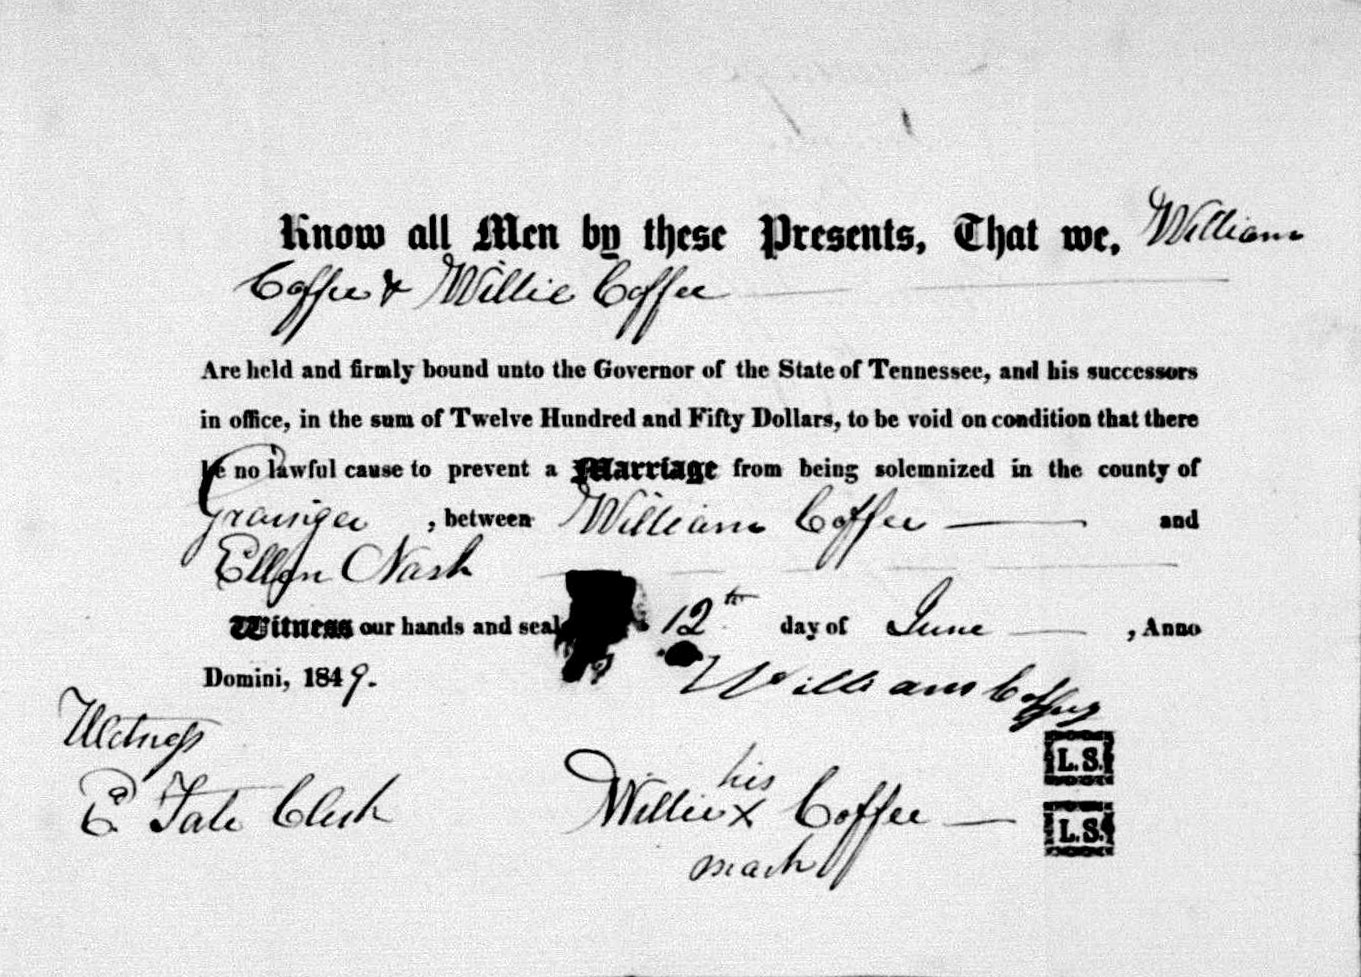 Know all Men by these Presents, That we, William
Coffee & Willie Coffee
Are held and firmly bound unto the Governor of the State of Tennessee, and his successors
in office, in the sum of Twelve Hundred and Fifty Dollars, to be void on condition that there
be no lawful cause to prevent a Marriage from being solemnized in the county of
Grainger, between William Coffee and
Ellen Nash
Witness our hands and seal 12th day of June, Anno
Domini, 1849.
William Coffey
Witness
L.S.
his
E Tate Clerk
Willie X Coffee
L.S.
mark